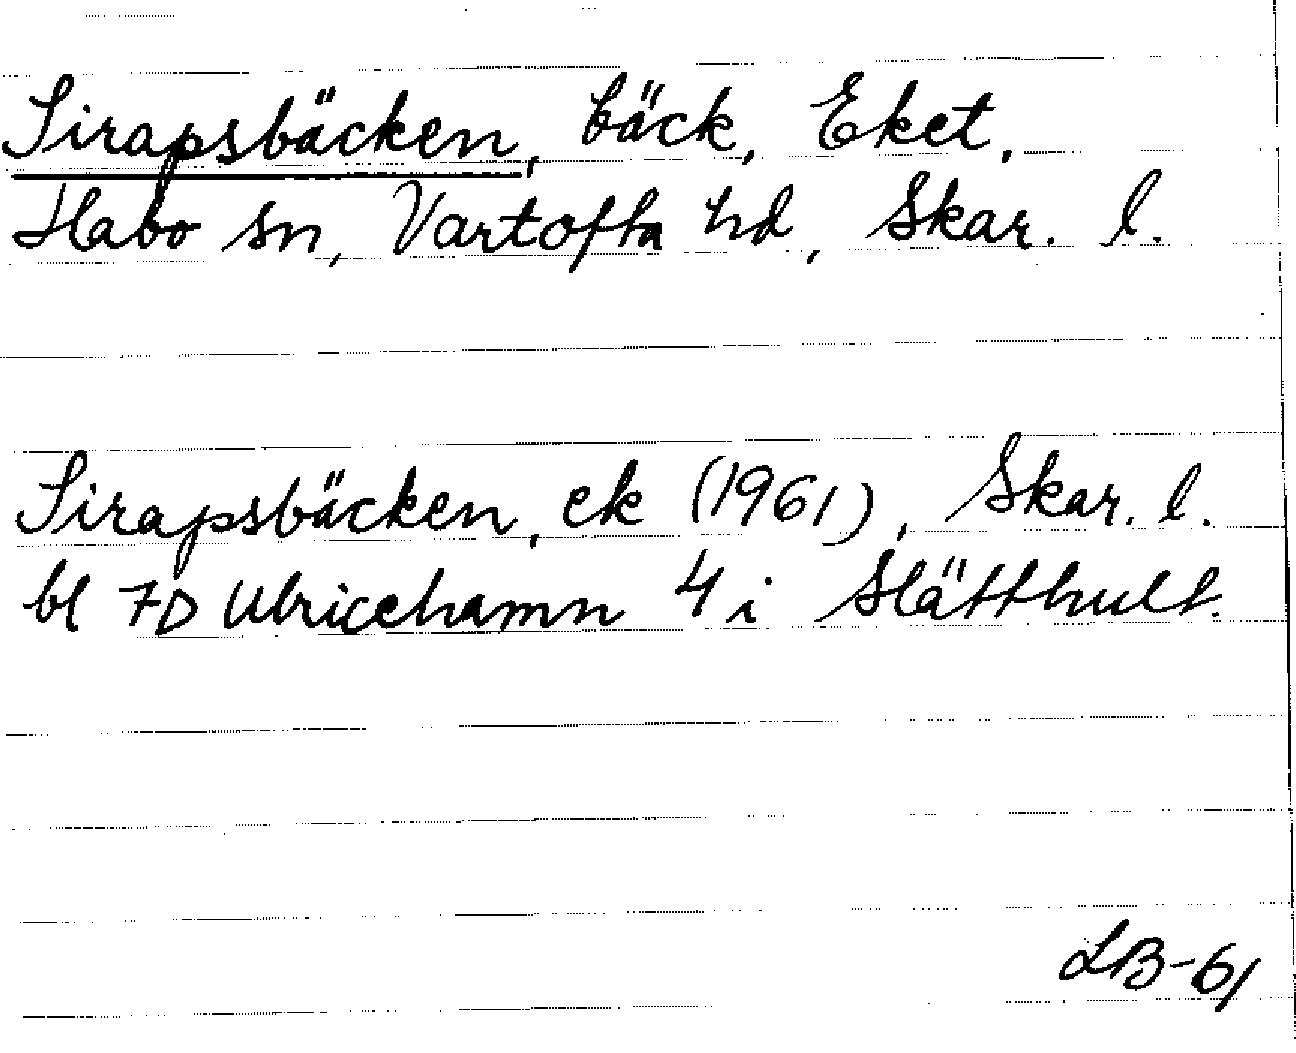 Sirapsbäcken, bäck, Eket,
Habo sn, Vartofta hd, Skar. l.
Sirapsbäcken, ek (1961), Skar. l.
bl 7D Ulricehamn 4 i Slätthult.
LB-61